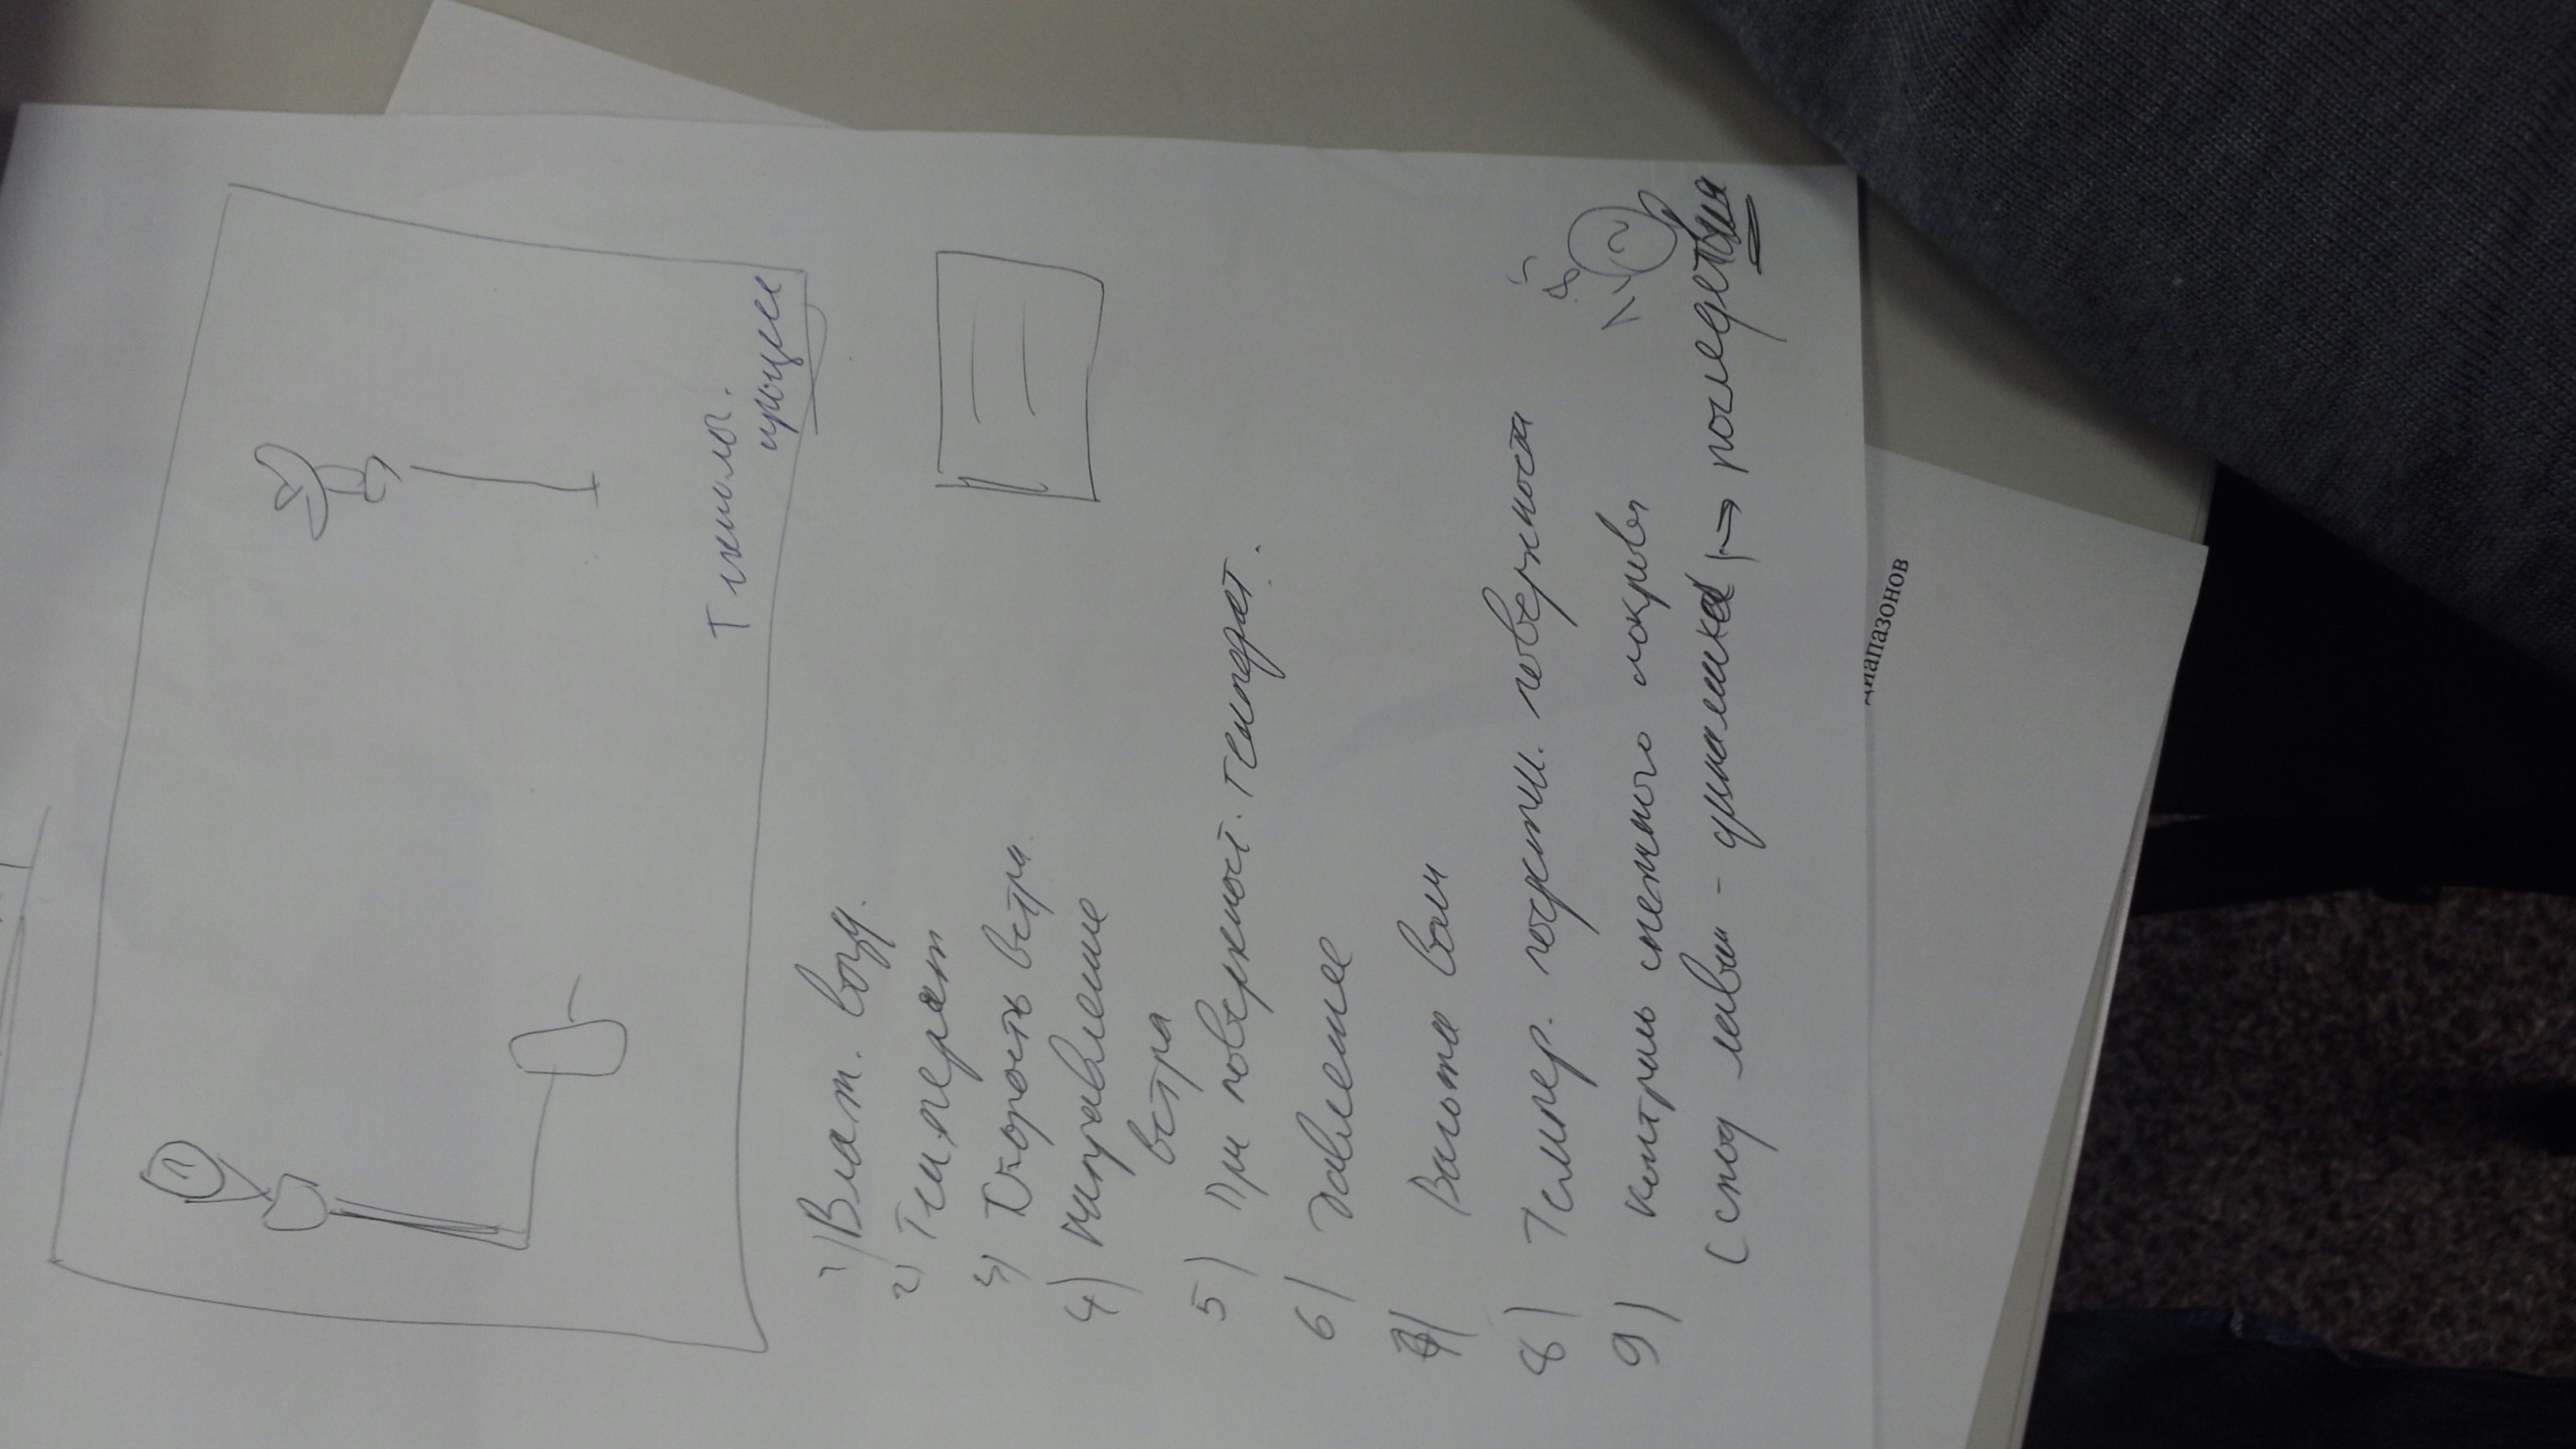 Технолог.
процесс
1) Влаж. возд.
2) Температ
3) Скорость ветра.
4) направление
ветра
5) При поверхност. температ.
6) Давление
7) Высота волн
8) Темпер. подстил. поверхности
9) контроль снежного покрова
Сход лавин - динамика → последствия
диапазонов